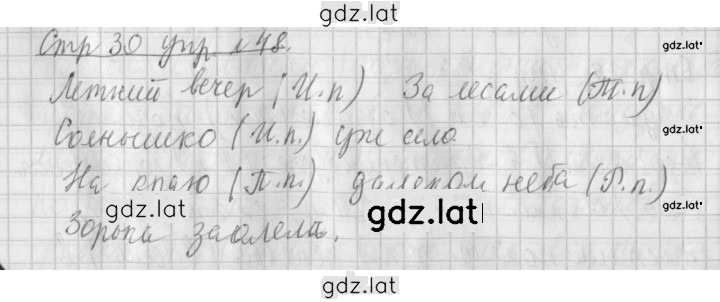 gdz.lat
Стр 30 упр. №48.
gdz.lat
Летний вечер (И.п) За лесами (Т.п)
Солнышко (И.п.) уж село.
gdz.lat
На краю (П.п.) далеком неба (Р.п.)
gdz.lat
gdz.lat
gdz.lat
Зорька заалела.
gdz.lat
gdz.lat